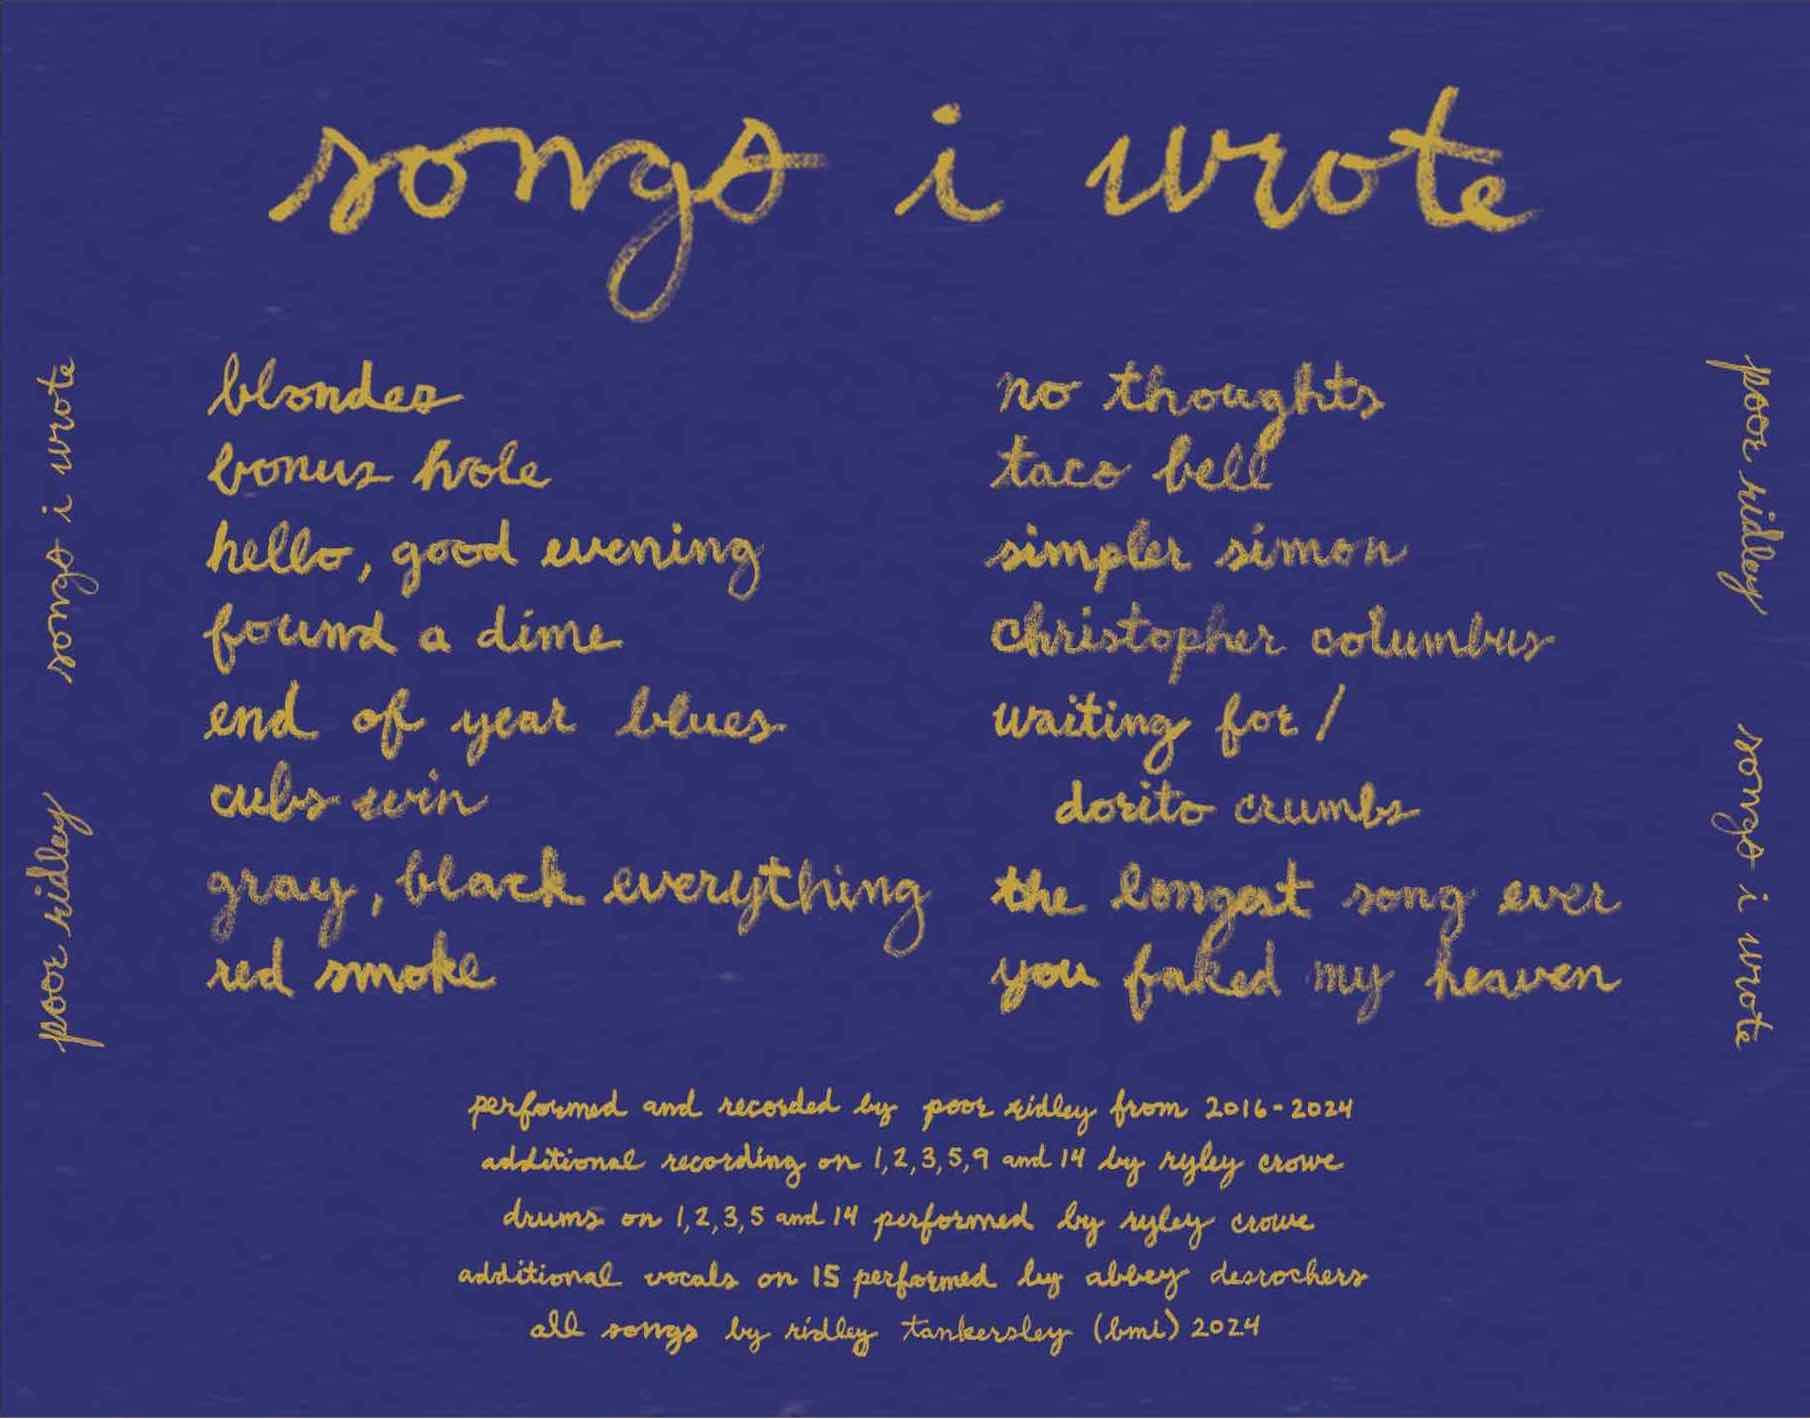 songs i wrote
blondes
bonus hole
hello, good evening
found a dime
end of year blues
cubs win
gray, black everything
red smoke
no thoughts
taco bell
simpler simon
christopher columbus
waiting for /
dorito crumbs
the longest song ever
you faked my heaven
performed and recorded by poor ridley from 2016-2024
additional recording on 1,2,3,5,9 and 14 by ryley crowe
drums on 1,2,3,5 and 14 performed by ryley crowe
additional vocals on 15 performed by abbey desrochers
all songs by ridley tankersley (bmi) 2024
poor ridley songs i wrote
poor ridley songs i wrote